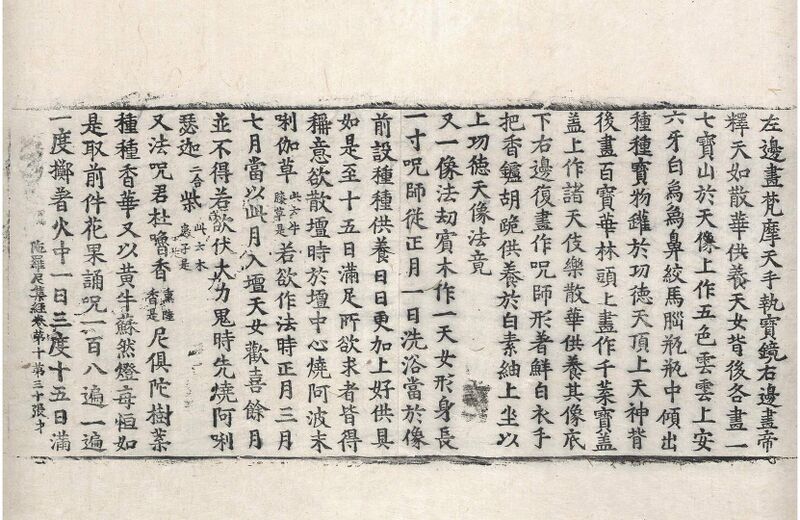 左邊畫梵摩天手執寶鏡右邊畫帝
釋天如散華供養天女背後各畫一
七寶山於天像上作五色雲雲上安
六牙白烏烏鼻絞馬腦瓶瓶中傾出
種種寶物雚於功德天頂上天神背
後畫百寶華林頭上畫作千葉寶盖
盖上作諸天伎樂散華供養其像底
下右邊復畫作呪師形著鮮白衣手
把香鑪胡跪供養於白素紬上坐以
上功德天像法竟
又一像法刧賓木作一天女形身長
一寸呪師從正月一日洗浴當於像
前設種種供養日日更加上好供具
如是至十五日滿足所欲求者皆得
稱意欲散壇時於壇中心燒阿波末
唎伽草此云牛膝草是若欲作法時正月三月
七月當以此月入壇天女歡喜餘月
並不得若欲伏大力鬼時先燒阿唎
瑟迦二合柴此云木 子是
又法呪君杜嚕香薰陸香是尼俱陀樹葉
種種香華又以黃牛蘇然燈每恒如
是取前件花果誦呪一百八遍一遍
一度擲著火中一日三度十五日滿
陁羅尼集經卷第十 第三十張 才